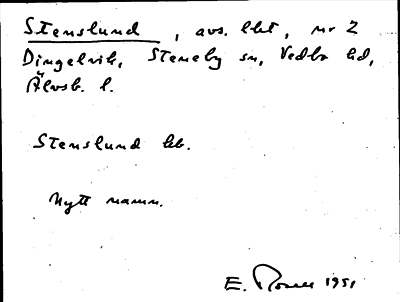 Stenslund, avs. lht, nr 2
Dingelvik, Steneby sn, Vedbo hd,
Älvsb. l.
Stenslund hb.
Nytt namn.
E. 1951